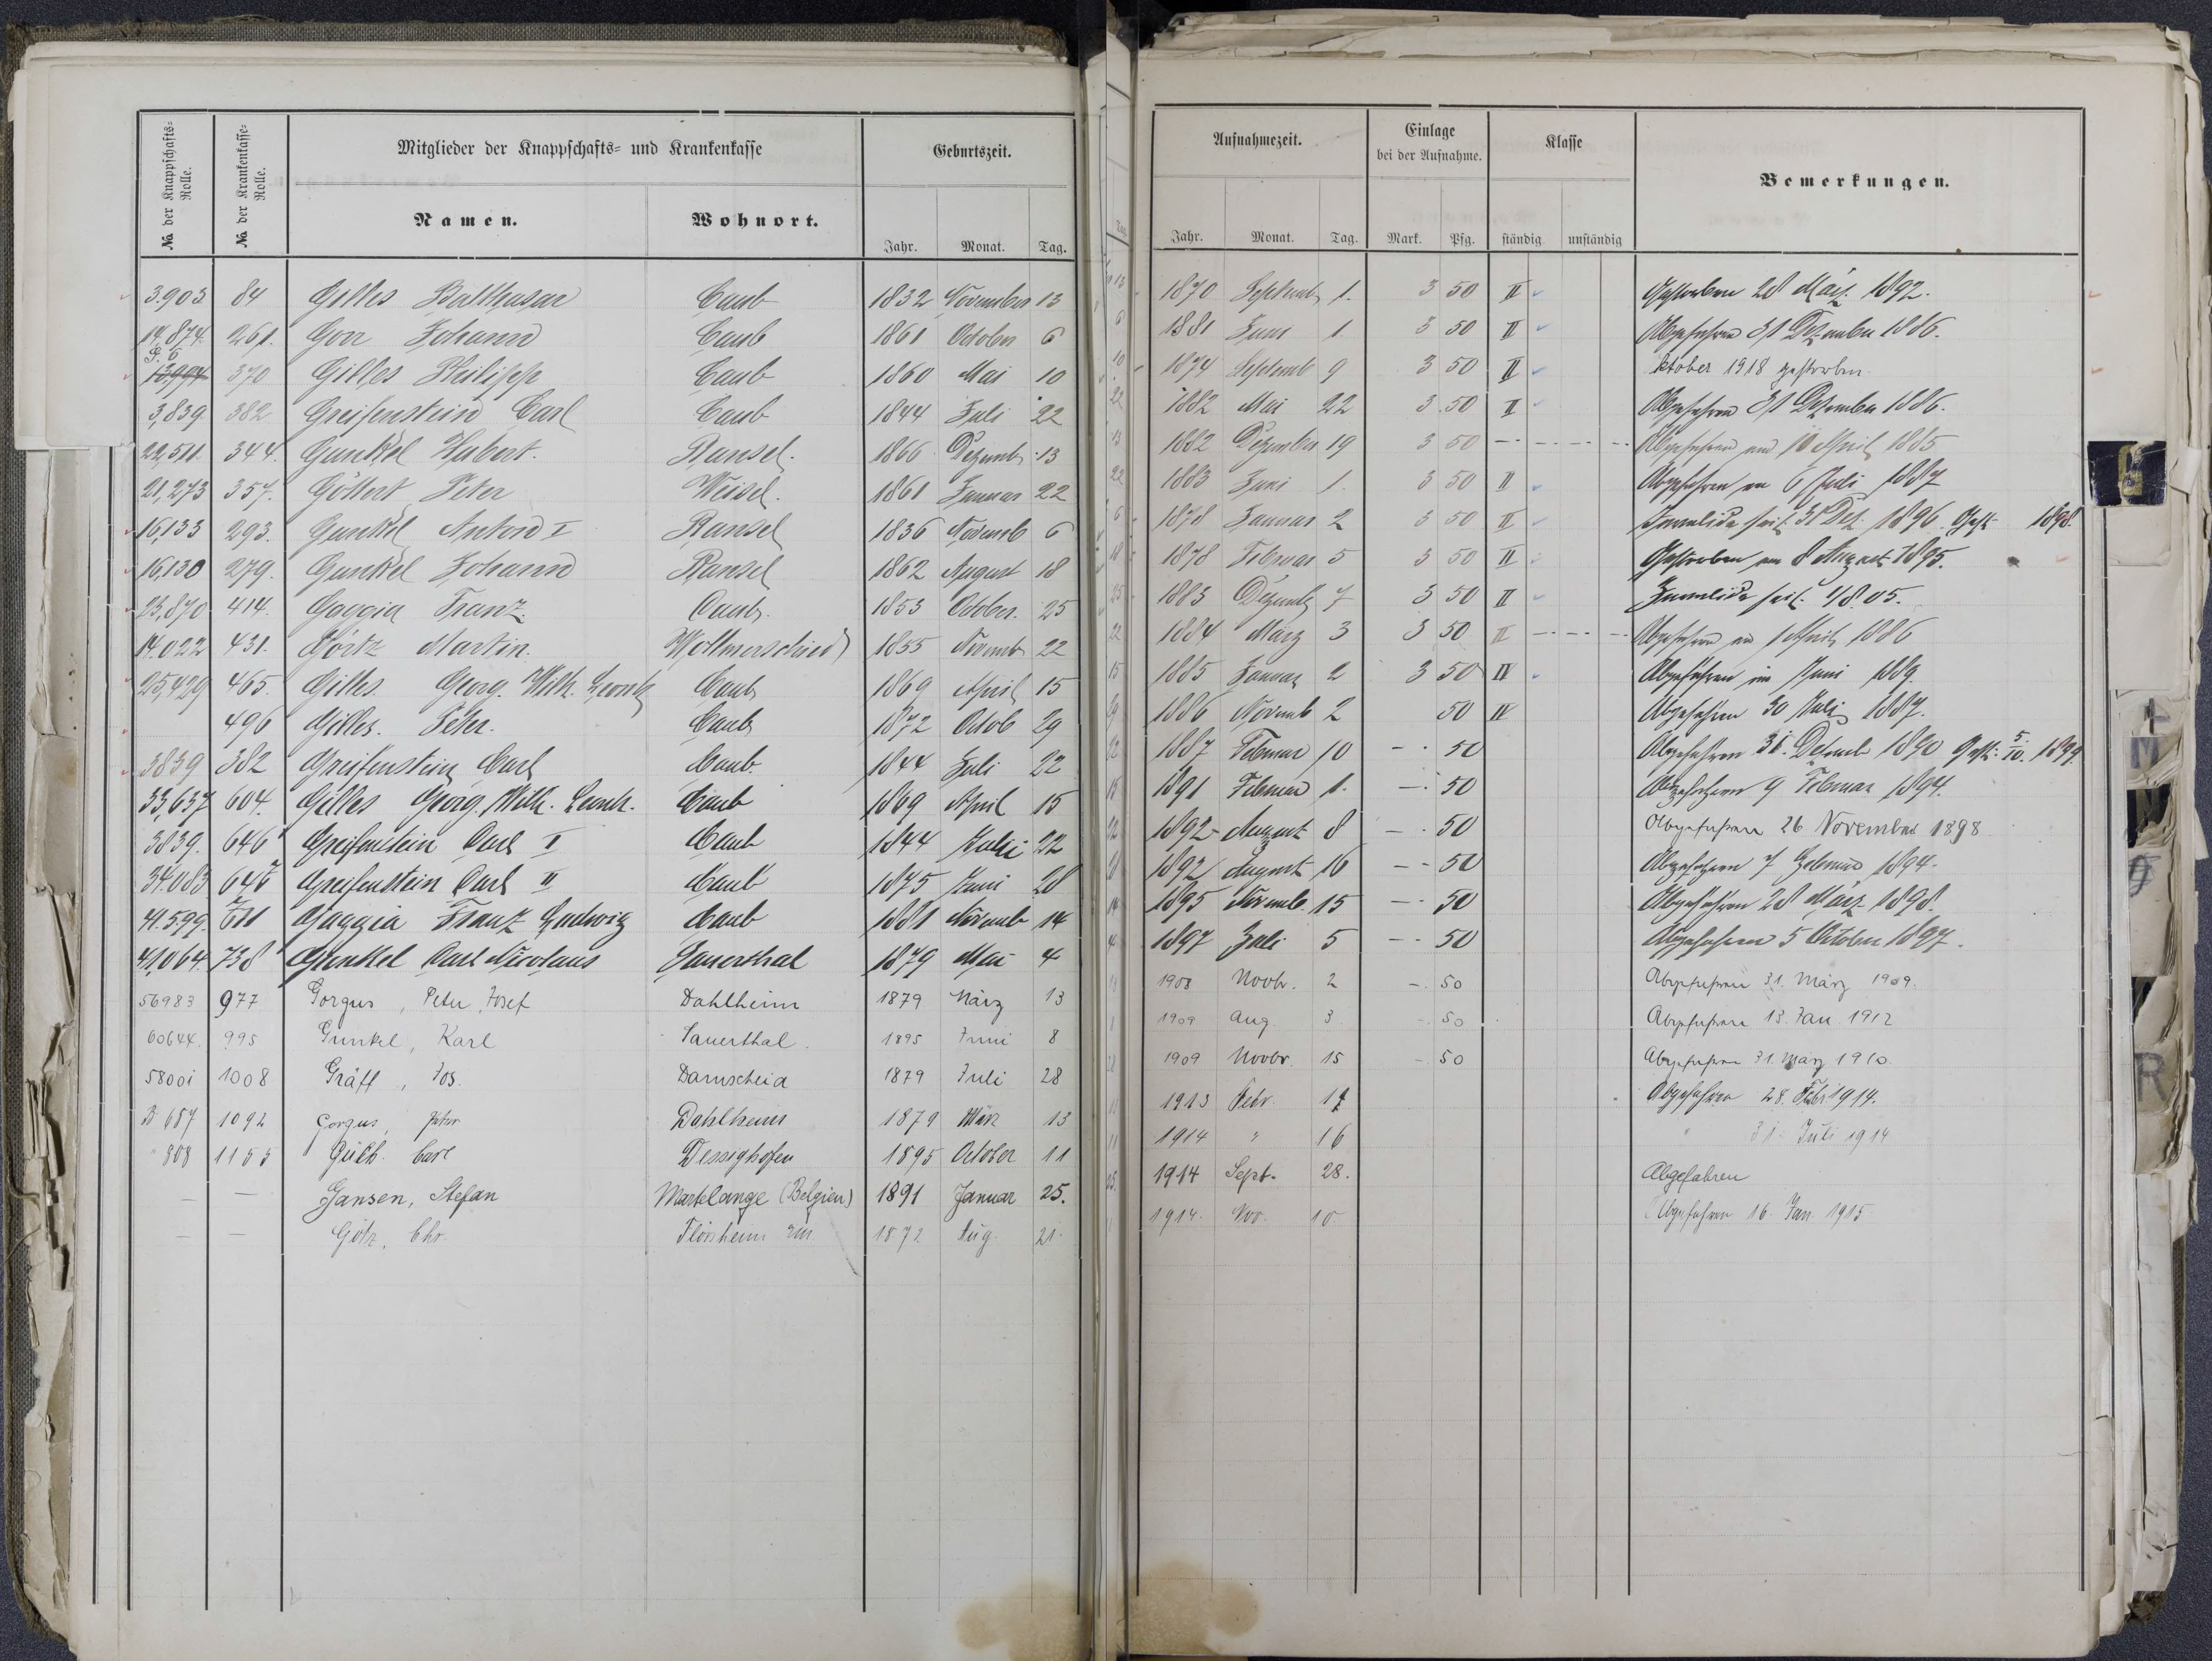 No der Knappschafts-Rolle. No der Krankenkasse-Rolle. Mitglieder der Knappschafts- und Krankenkasse Geburtszeit.
Namen. Wohnort. Jahr. Monat. Tag.
3.903 84 Gilles Balthasar Caub 1832 November 13
14,874. 261. Gorr Johann Caub 1861 October 6
G. 6
13994 370 Gilles Philipp Caub 1860 Mai 10
3,839 382 Greifenstein Carl Caub 1844 Juli 22
22,511 344. Gunkel Hubert. Ransel. 1866 Dezemb. 13
21,273 357. Göttert Peter Weisel. 1861 Januar 22
16,133 293. Gunkel Anton I Ransel 1836 Novemb 6
16,130 279. Gunkel Johann Ransel 1862 August 18
23,870 414. Gaggia Franz. Caub. 1853 October. 25
14.022 431. Görtz Martin. Wollmerschied 1855 Novemb 22
25,429 465. Gilles. Georg. Wilh. Leonh. Caub 1869 April 15
496 Gilles. Peter. Caub 1872 Octob 29
3839 382 Greifenstein Carl Caub. 1844 Juli 22
33,637 604. Gilles Georg. Wilh. Leonh. Caub 1869 April 15
3839. 646 Greifenstein Carl I Caub 1844 Juli 22
34.083 Greifenstein Carl II Caub 1875 Juni 28
41.599. Gaggia Franz Ludwig Caub 1881 Novemb 14
41,064. 738 Gunkel Carl Nicolaus Sauerthal 1879 Mai 4
56983 977 Gorgus, Peter Josef Dahlheim 1879 März 13
60644. 995 Gunkel, Karl Sauerthal. 1895 Juni 8
58001 1008 Gräff, Jos. Damscheid 1879 Juli 28
3 657 1092 Gorgus, Peter Dahlheim 1879 März 13
" 808 1153 Carl Dessighofen 1895 October 11
— — Gansen, Stefan Martelange (Belgien) 1891 Januar 25.
— — Götz, Chr. Flörsheim 1872 Aug. 21.
Aufnahmezeit. Einlage bei der Aufnahme. Klasse Bemerkungen.
Jahr. Monat. Tag. Mark. Pfg. ständig unständig
1870 Septemb. 1. 3 50 II Gestorben 28 März 1892.
1881 Juni 1 3 50 II Abgefahren 31 Dezember 1886.
1874 Septemb 9 3 50 II ktober 1918 gestorben.
1882 Mai 22 3.50 II Abgefahren 31 Dezember 1886.
1882 Dezember 19 3 50 Abgefahren am 10 April 1885
1883 Juni 1. 3 50 II Abgefahren am 6 Juli 1887
1878 Januar 2 3 50 II Invalide seit 31 Dez. 1896. Gest. 1898.
1878 Februar 5 3 50 II Gestorben am 8 August 1895.
1883 Dezemb 7 3 50 II Invalide seit 1/8.05.
1884 März 3 3 50 II Abgefahren am 1 April 1886
1885 Januar 2 3 50 IV Abgefahren im Juni 1889.
1886 Novemb 2 50 IV Abgefahren 30 Juli 1887.
1887 Februar 10 -. 50 Abgefahren 31. Dezemb 1890 Gest. 5./10. 1899.
1891 Februar 1. -. 50 Abgefahren 9 Februar 1894.
1892 August 8 -. 50 Abgefahren 26 November 1898
1892 August 16 -. 50 Abgefahren 7 Februar 1894.
1895 Novemb. 15 -. 50 Abgefahren 28 März 1898.
1897 Juli 5 -. 50 Abgefahren 5 October 1897.
1908 Novbr. 2 -. 50 Abgefahren 31. März 1909.
1909 Aug. 3 -. 50 Abgefahren 13. Jan. 1912
1909 Novbr. 15 -. 50 Abgefahren 31. März 1910.
1913 Febr. 17 Abgefahren 28. Febr. 1914.
1914 " 16 " 31. Juli 1914
1914 Sept. 28. Abgefahren
1914. Nov. 10. Abgefahren 16. Jan. 1915